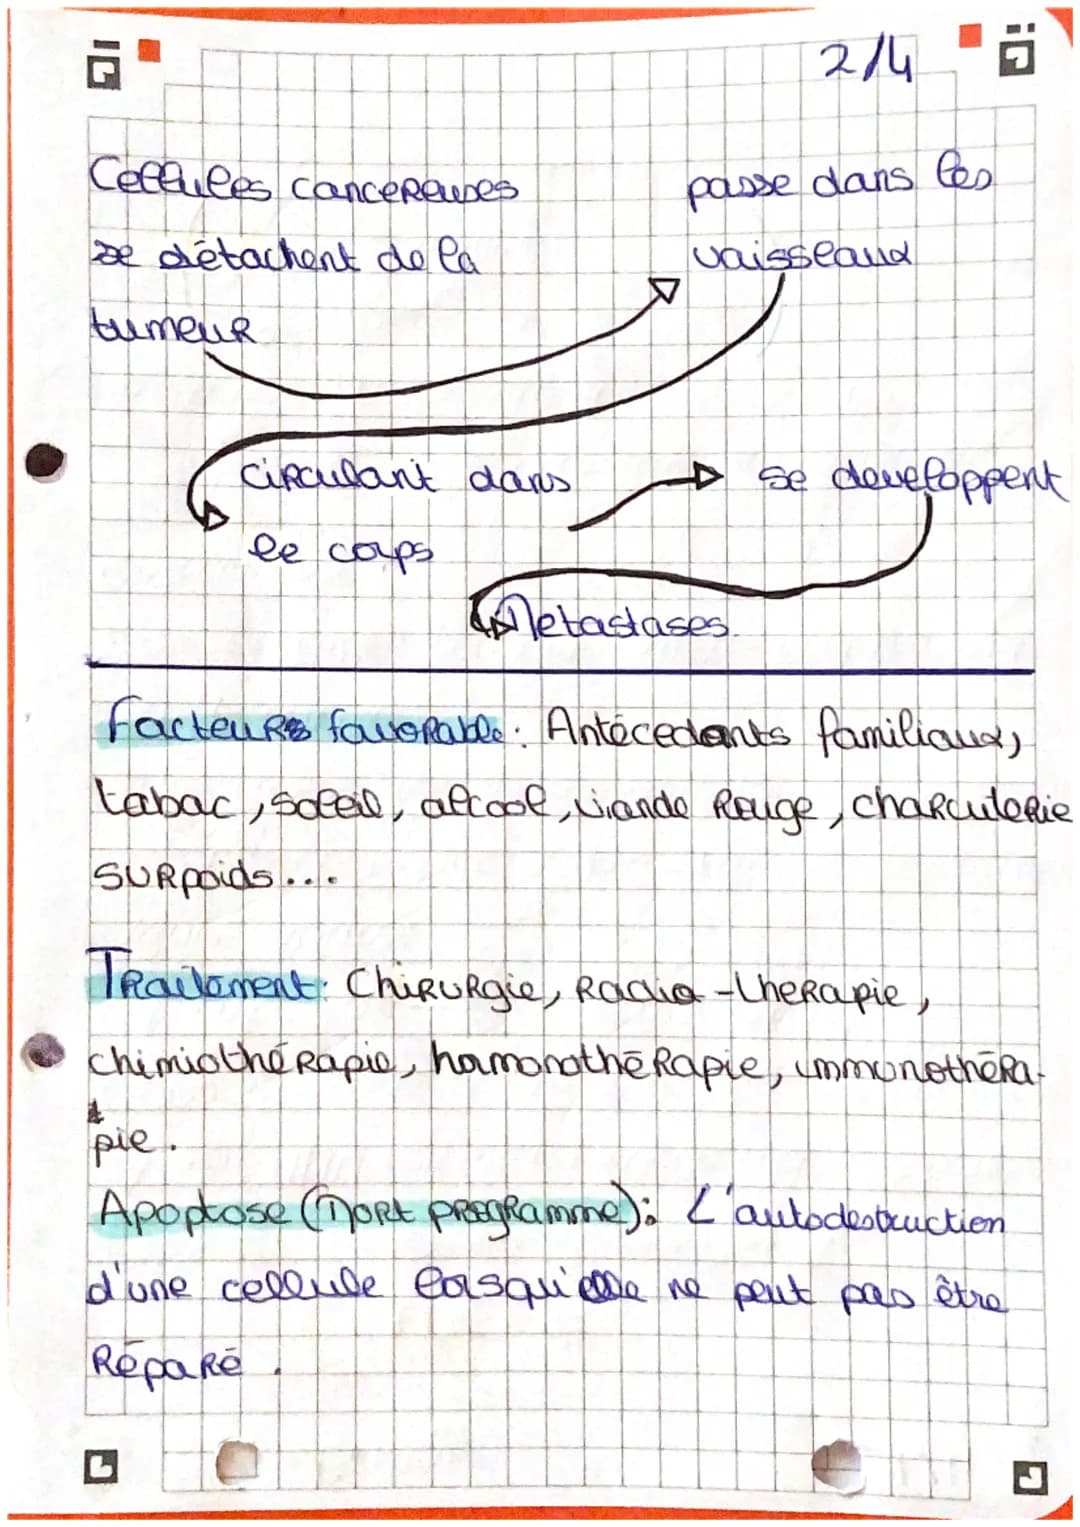 2/4
Cellules cancereuses
se détachent de la
tumeur
passe dans les
vaisseaux
circulant dans
le corps
se developpent
Metastases.
Facteurs favorable : Antécedants familiaux,
tabac, soleil, alcool, viande Rouge, charcuterie
surpoids...
Traitement : Chirurgie, Radio-therapie,
chimiothérapie, hormonothérapie, immunothéra-
pie.
Apoptose (Mort programme) : L'autodestruction
d'une cellule lorsqu'elle ne peut pas être
Réparé.